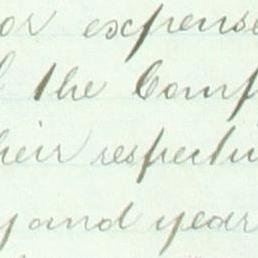 or expense
the Comp
heir respecti
y and year